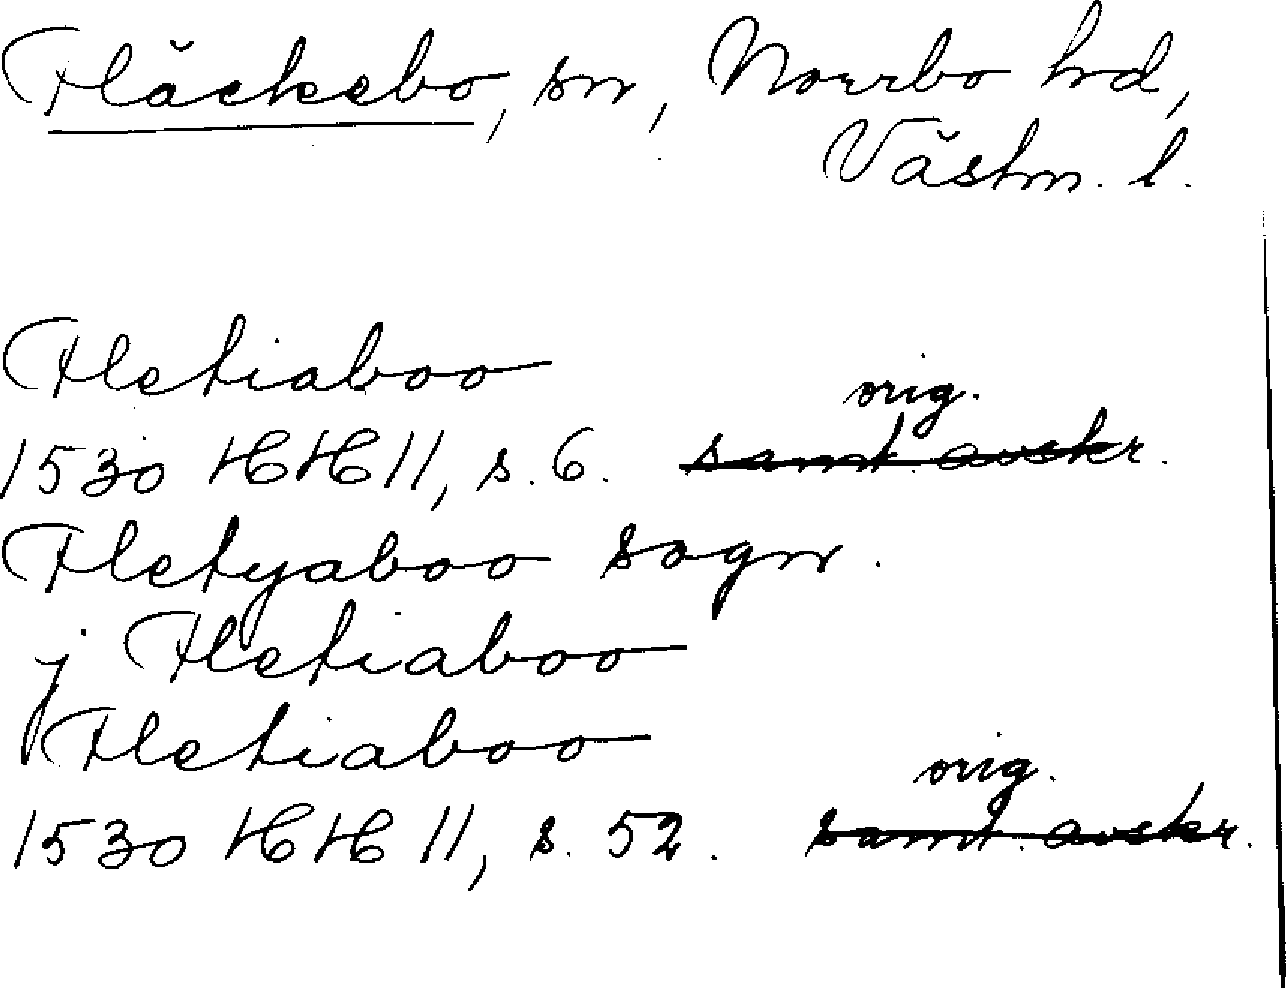 Fläckebo, sn, Norrbo hd,
Västm. l.
Fletiaboo
orig.
1530 HH 11, s. 6. samt. avskr.
Fletyaboo sogn.
j Fletiaboo
Fletiaboo
orig.
1530 HH 11, s. 52. samt. avskr.